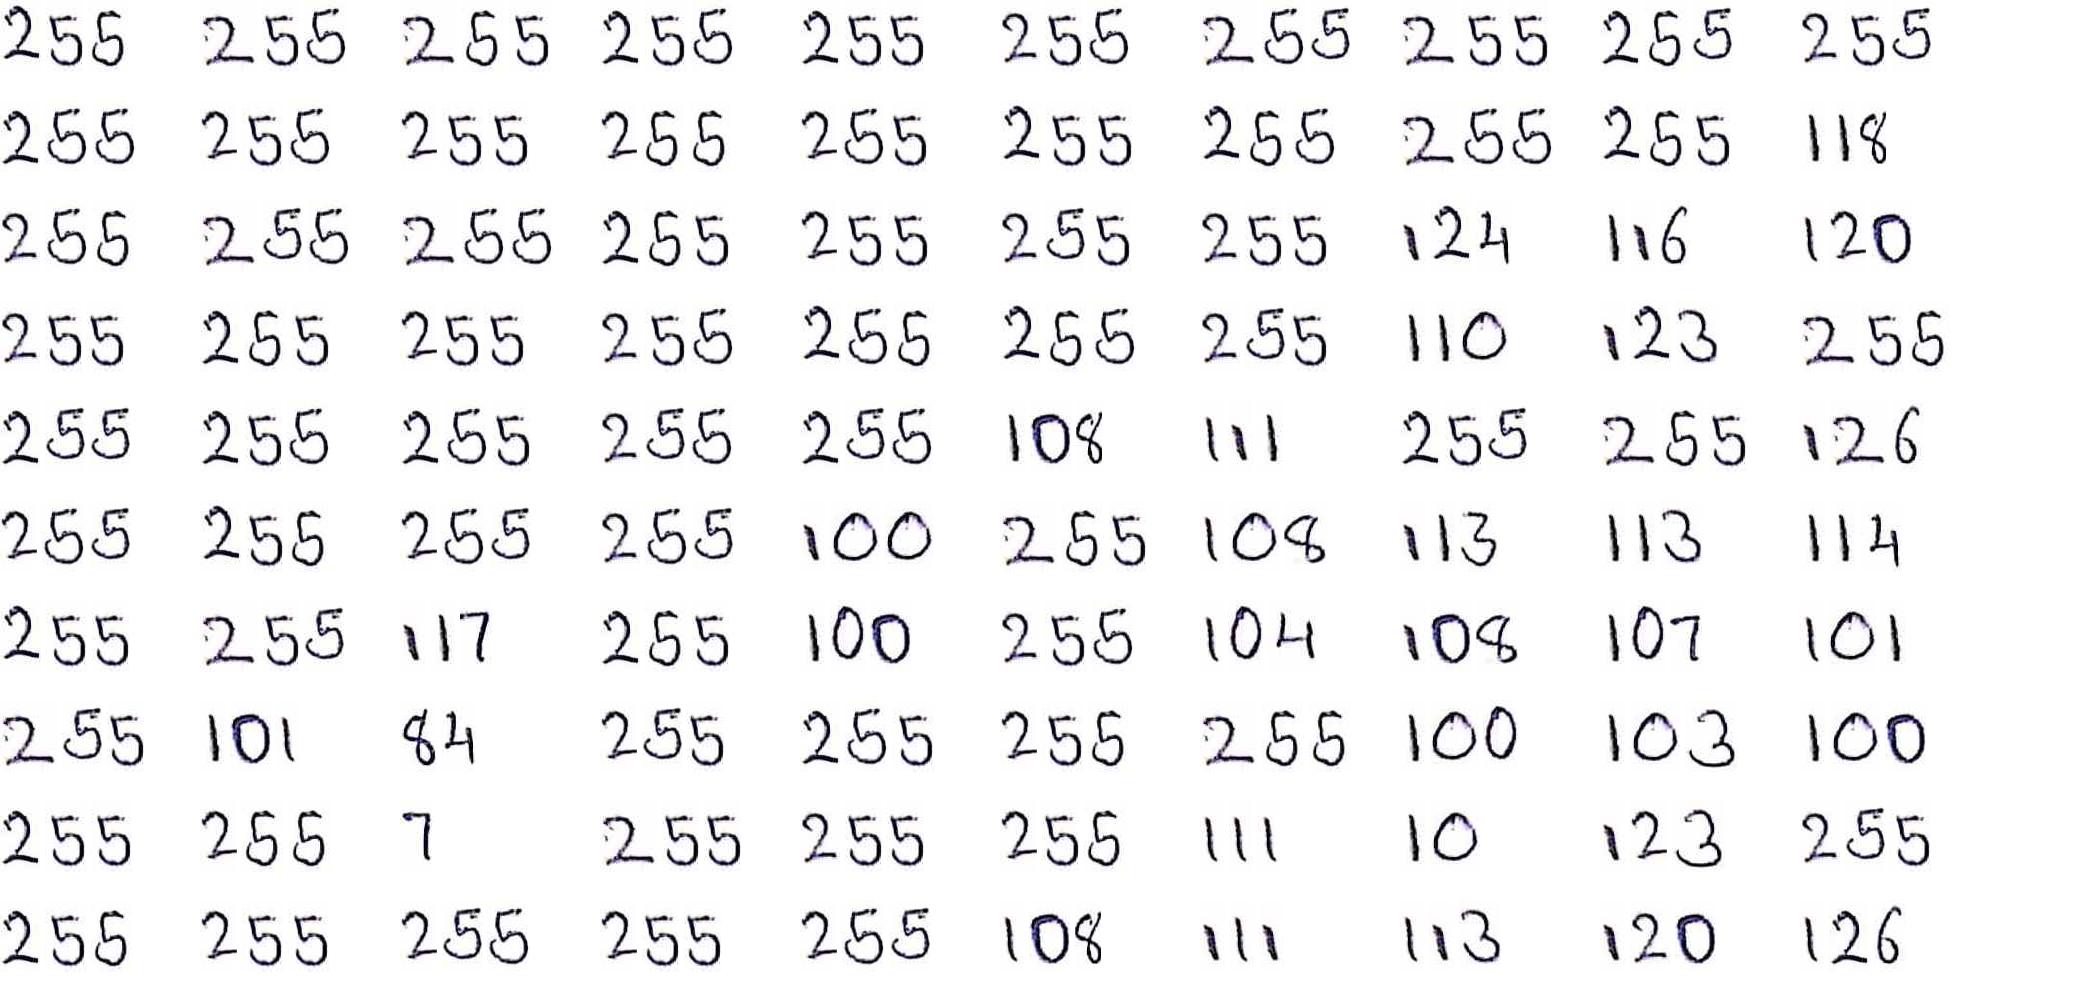 255 255 255 255 255 255 255 255 255 255
255 255 255 255 255 255 255 255 255 118
255 255 255 255 255 255 255 124 116 120
255 255 255 255 255 255 255 110 123 255
255 255 255 255 255 108 111 255 255 126
255 255 255 255 100 255 108 113 113 114
255 255 117 255 100 255 104 108 107 101
255 101 84 255 255 255 255 100 103 100
255 255 7 255 255 255 111 10 123 255
255 255 255 255 255 108 111 113 120 126